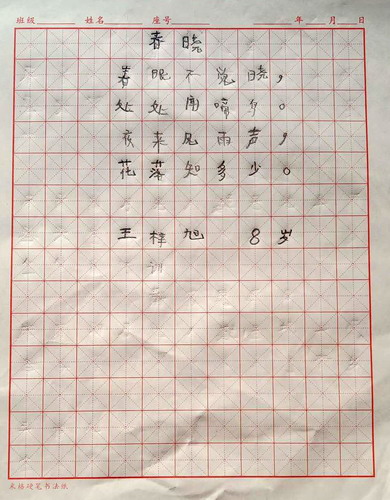 班级 姓名 座号 年 月 日
春晓
春眠不觉晓，
处处闻啼鸟。
夜来风雨声，
花落知多少。
王梓旭 8岁
米格硬笔书法纸